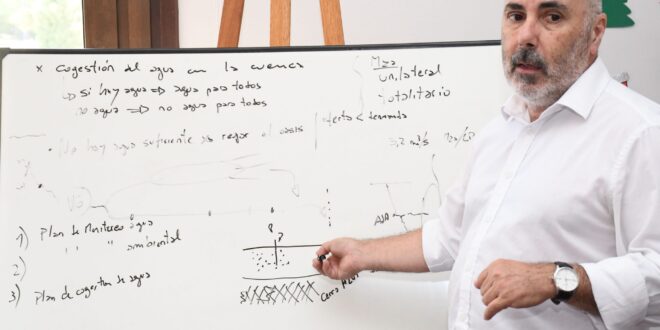 x Cogestión del agua en la cuenca
↳ Si hay agua ⇒ agua para todos
no agua ⇒ no agua para todos
Mza
unilateral
totalitario
oferta < demanda
* No hay agua suficiente regar el oasis
3,2 m³/s
1) Plan de Monitoreo agua
" " " ambiental
2)
3) Plan de cogestion de agua
8
?
Cerro